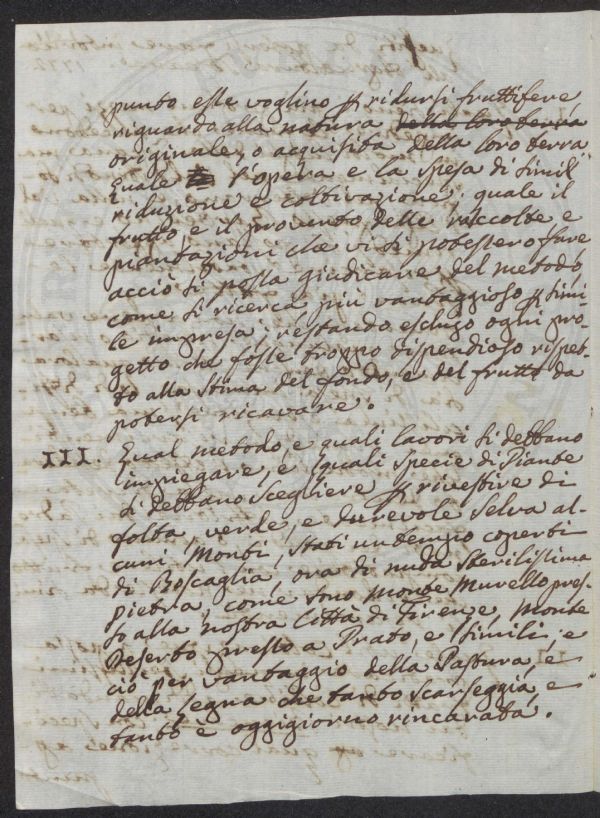 punto esse voglino p ridursi fruttifere
riguardo alla natura della loro terra
originale, o acquisita della loro terra.
Quale l'opera e la spesa di simil
riduzione e coltivazione; quale il
frutto, e il provento delle raccolte e
piantazioni che vi si potessero fare
acciò si possa giudicare del metodo,
come si ricerca, più vantaggioso p simi-
le impresa; restando escluso ogni pro-
getto che fosse troppo dispendioso rispet-
to alla stima del fondo, e del frutto da
potersi ricavare.
III. Qual metodo, e quali lavori si debbano
impiegare, e quali specie di Piante
si debbano scegliere p rivestire di
folta, verde, e durevole selva al-
cuni Monti, stati un tempo coperti
di Boscaglia, ora di nuda sterilissima
pietra, come sono Monte Murello pres-
so alla nostra Città di Firenze, Monte
Deserto presso a Prato, e simili; e
ciò per vantaggio della Pastura, e
della legna che tanto scarseggia, e
tanto è oggigiorno rincarata.